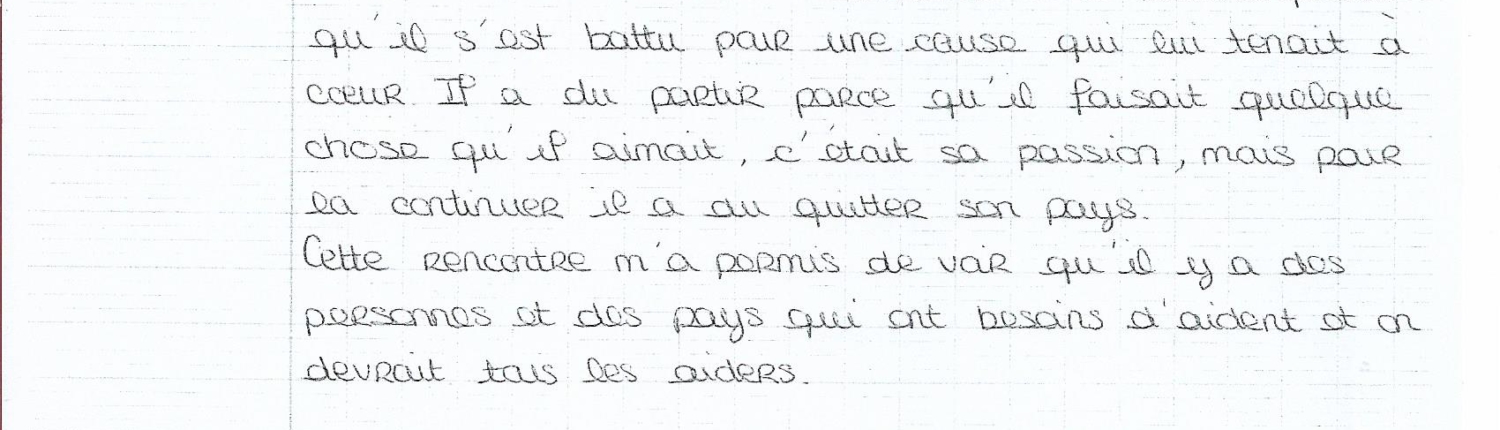 qu'il s'est battu pour une cause qui lui tenait à
coeur. Il a du partir parce qu'il faisait quelque
chose qu'il aimait, c'était sa passion, mais pour
la continuer il a du quitter son pays.
Cette rencontre m'a permis de voir qu'il y a des
personnes et des pays qui ont besoins d'aident et on
devrait tous les aiders.